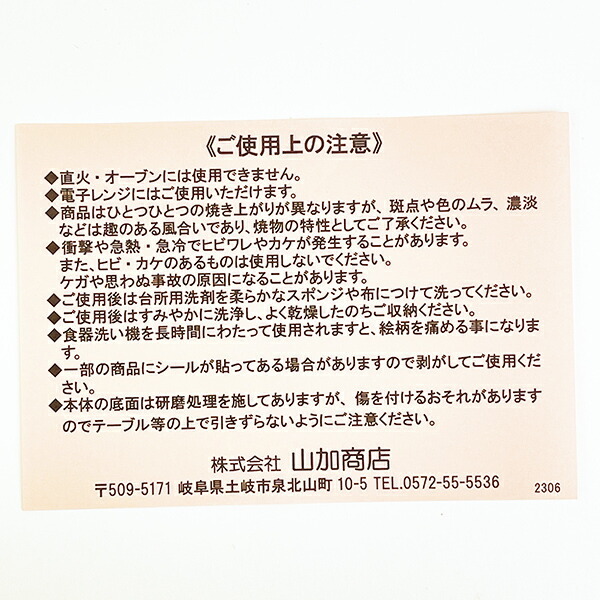 《ご使用上の注意》
◆直火・オーブンには使用できません。
◆電子レンジにはご使用いただけます。
◆商品はひとつひとつの焼き上がりが異なりますが、斑点や色のムラ、濃淡
などは趣のある風合いであり、焼物の特性としてご了承ください。
◆衝撃や急熱・急冷でヒビワレやカケが発生することがあります。
また、ヒビ・カケのあるものは使用しないでください。
ケガや思わぬ事故の原因になることがあります。
◆ご使用後は台所用洗剤を柔らかなスポンジや布につけて洗ってください。
◆ご使用後はすみやかに洗浄し、よく乾燥したのちご収納ください。
◆食器洗い機を長時間にわたって使用されますと、絵柄を痛める事になりま
す。
◆一部の商品にシールが貼ってある場合がありますので剥がしてご使用くだ
さい。
◆本体の底面は研磨処理を施してありますが、傷を付けるおそれがあります
のでテーブル等の上で引きずらないようにご注意ください。
株式会社 山加商店
〒509-5171 岐阜県土岐市泉北山町 10-5 TEL.0572-55-5536
2306